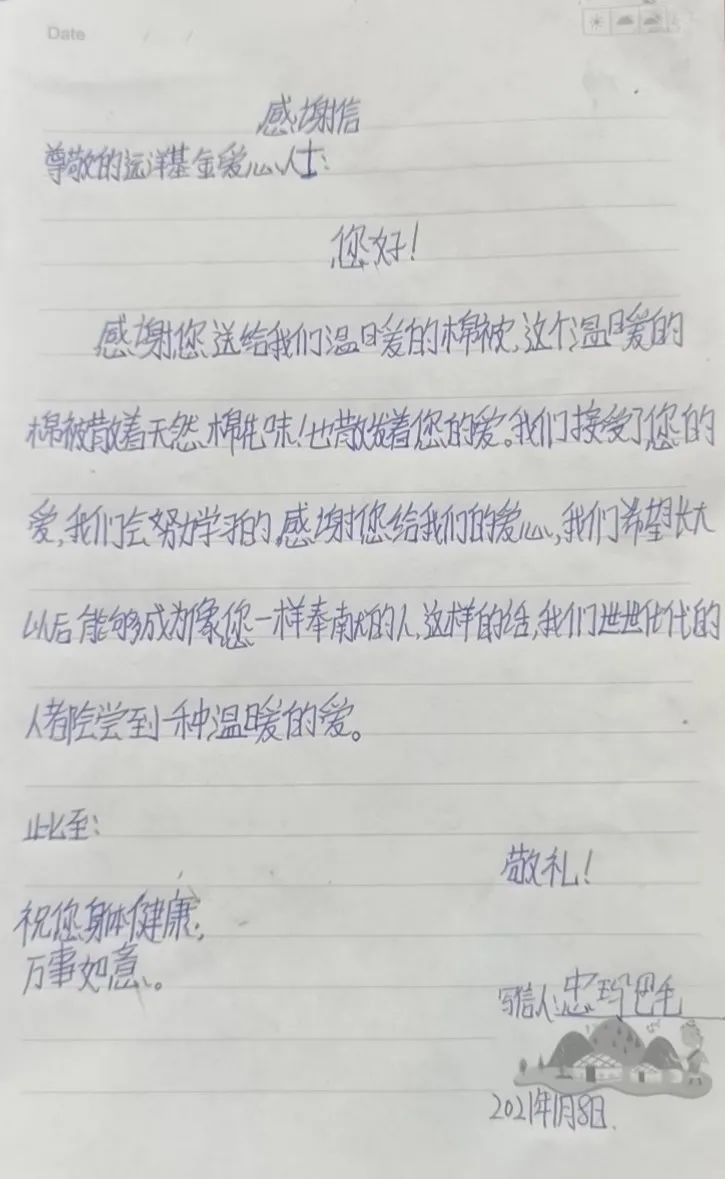 Date / /
感谢信
尊敬的远洋基金爱心人士:
您好!
感谢您送给我们温暖的棉被,这个温暖的
棉被散着天然棉花味!也散发着您的爱。我们接受了您的
爱,我们会努力学习的,感谢您给我们的爱心,我们希望长大
以后能够成为像您一样奉献的人,这样的话,我们世世代代的
人都会尝到一种温暖的爱。
此至:
敬礼!
祝您身体健康,
万事如意。
写信人:忠玛巴毛
2021年1月8日.